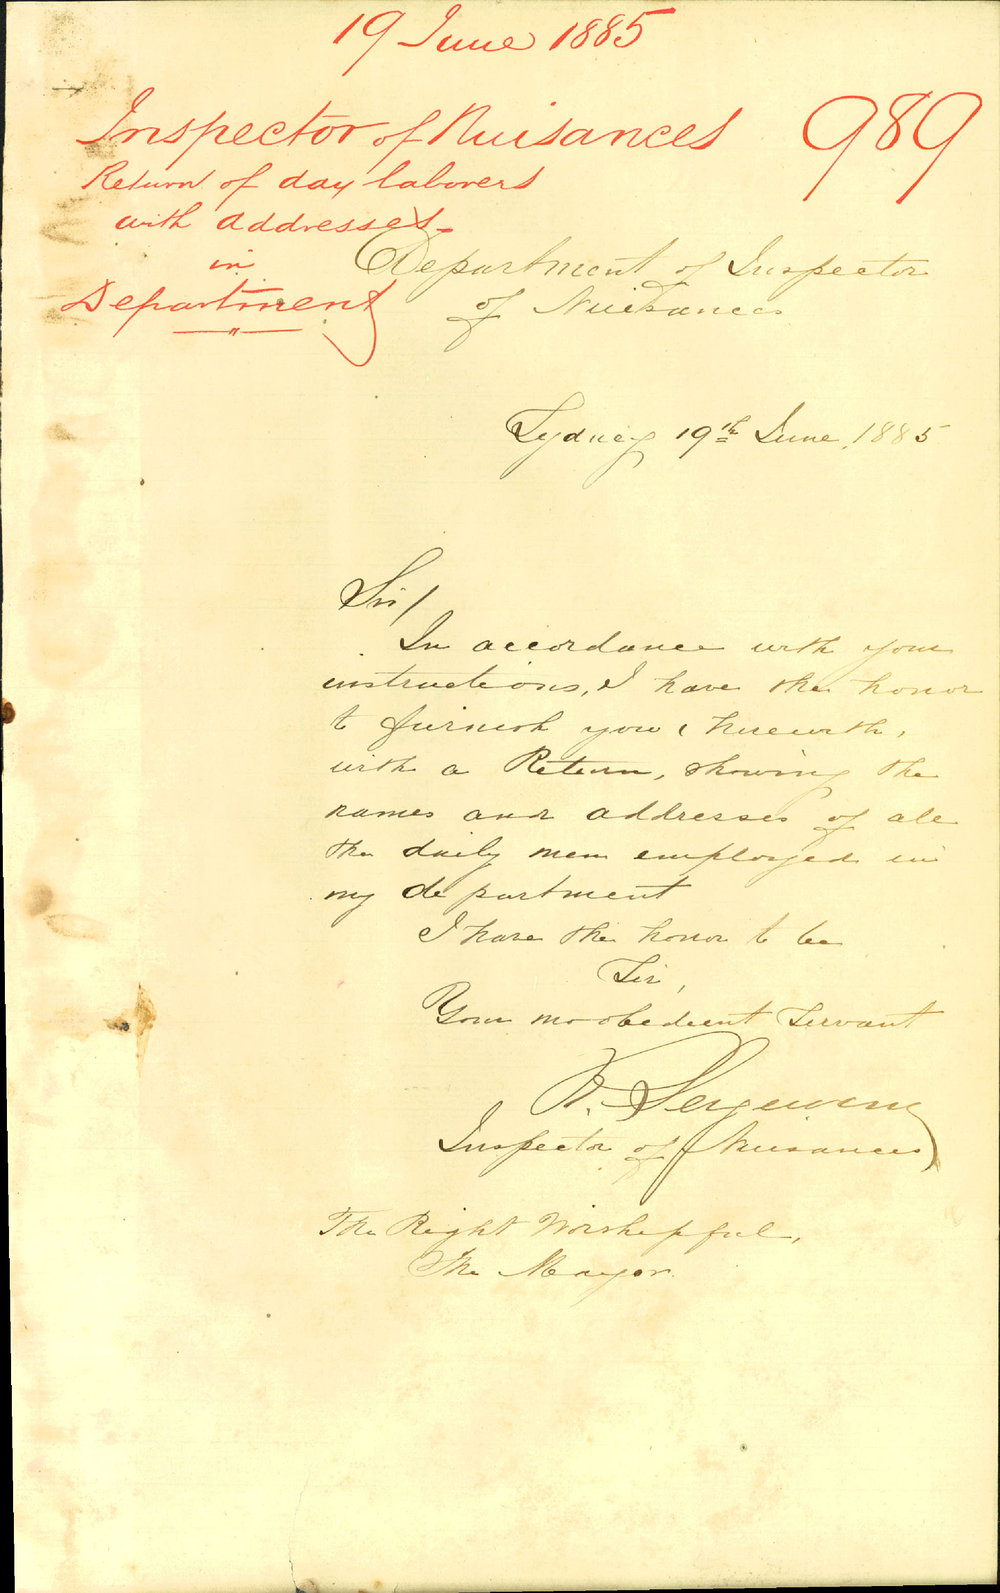 19 June 1885
Inspector of Nuisances 989
Return of day laborers
with addresses
in
Department
Department of Inspector
of Nuisances
Sydney 19th June, 1885
Sir/
In accordance with your
instructions, I have the honor
to furnish you, herewith,
with a Return, showing the
names and addresses of all
the daily men employed in
my department
I have the honor to be
Sir,
Your mo obedient Servant
Seymour
Inspector of Nuisances
The Right Worshipful,
The Mayor.